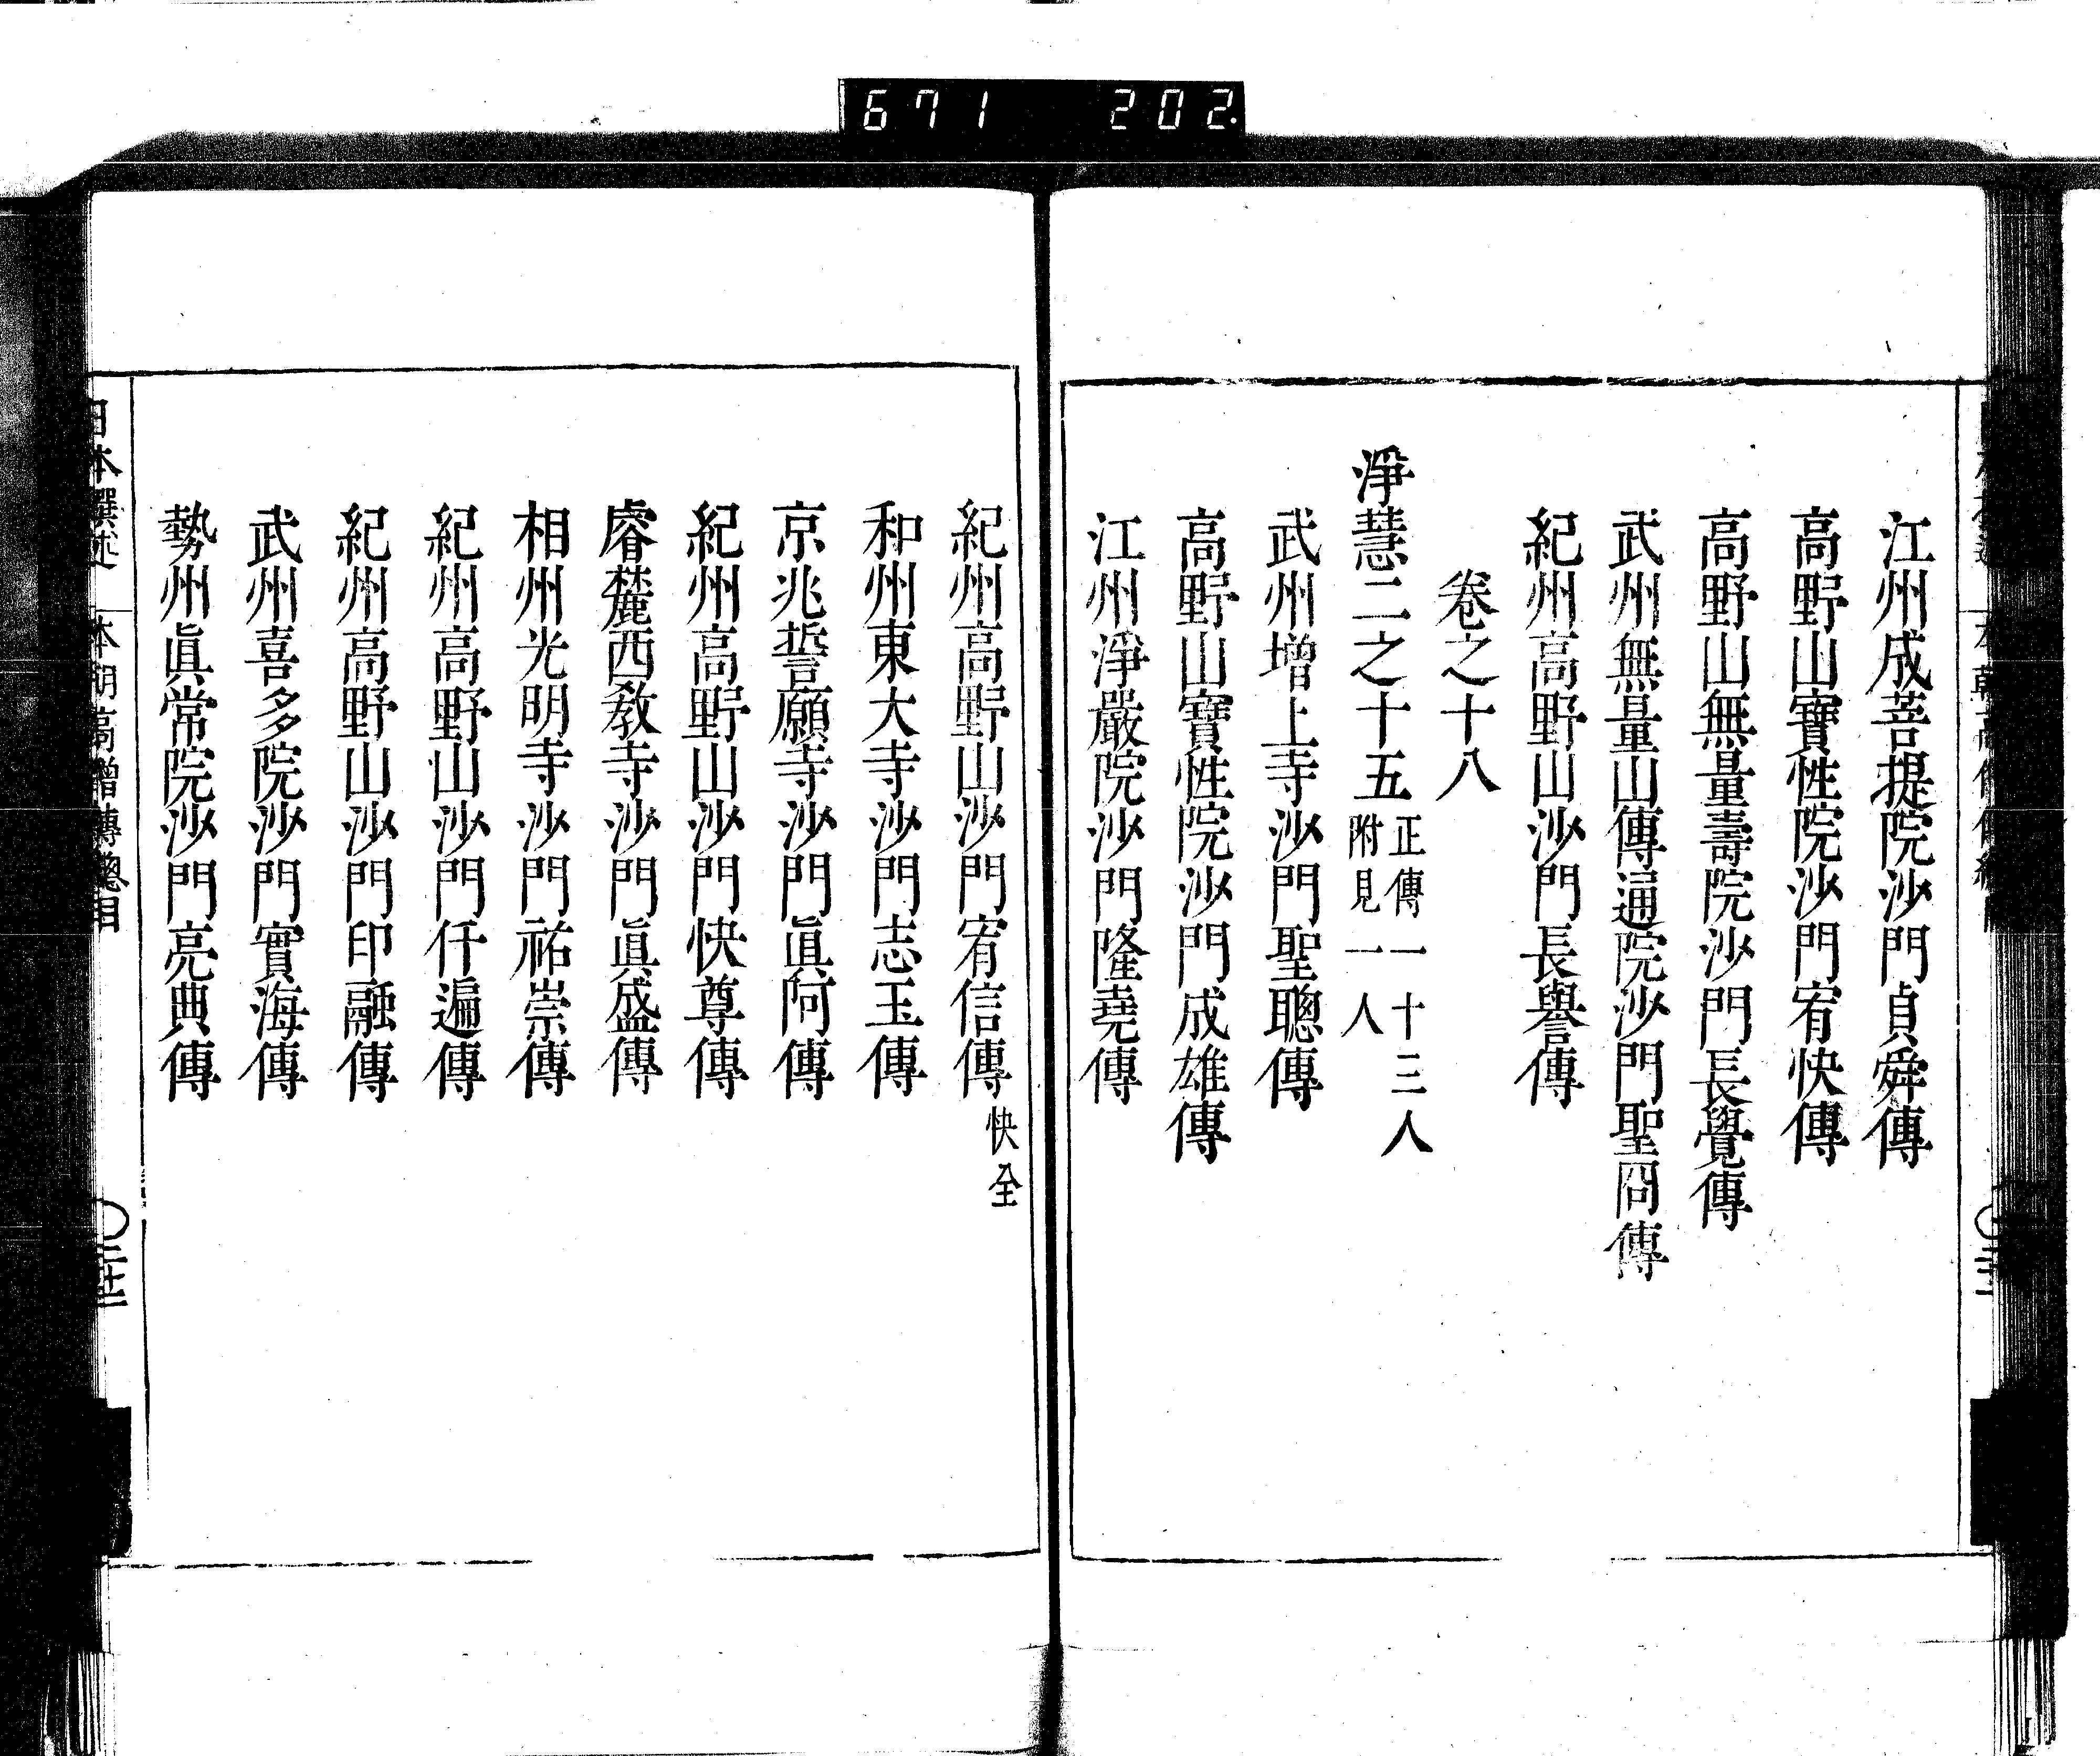 671 202
江州成菩提院沙門貞舜傳
高野山寶性院沙門宥快傳
高野山無量壽院沙門長覺傳
武州無量山傳通院沙門聖冏傳
紀州高野山沙門長譽傳
卷之十八
淨慧二之十五 正傳一十三人 附見一人
武州增上寺沙門聖聰傳
高野山寶性院沙門成雄傳
江州淨嚴院沙門隆堯傳
紀州高野山沙門宥信傳 快全
和州東大寺沙門志玉傳
京兆誓願寺沙門眞阿傳
紀州高野山沙門快尊傳
睿麓西教寺沙門眞盛傳
相州光明寺沙門祐崇傳
紀州高野山沙門仟遍傳
紀州高野山沙門印融傳
武州喜多院沙門實海傳
勢州眞常院沙門亮典傳
日本撰述 本朝高僧傳總目